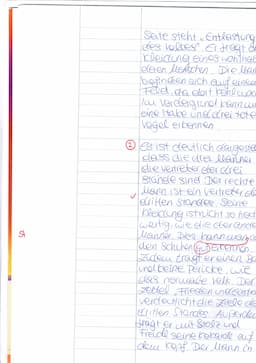 Seite steht „Entlastung
des Volkes“. Er trägt d
Kleidung eines
deren Menschen. Die Män
befinden sich auf einem
Feld, da dort
Im Vordergrund kann
eine Habe und drei tote
Vögel erkennen.
② Es ist deutlich dargeste
dass die drei Männer
die Vertreter der drei
Stände sind. Der rechte
Mann ist ein Vertreter de
dritten Standes. Seine
Kleidung ist nicht so hoch
wertig, wie die der ander
Männer. Das kann
den Schuhen erkennen.
Zudem trägt er einen
und keine Perücke, wie
das normale Volk. Der
Zettel „Frieden und
verdeutlicht die Ziele de
dritten Standes. Außerdem
trägt er mit Stolz und
Freude seine Kokarde auf
dem Kopf. Der Mann in